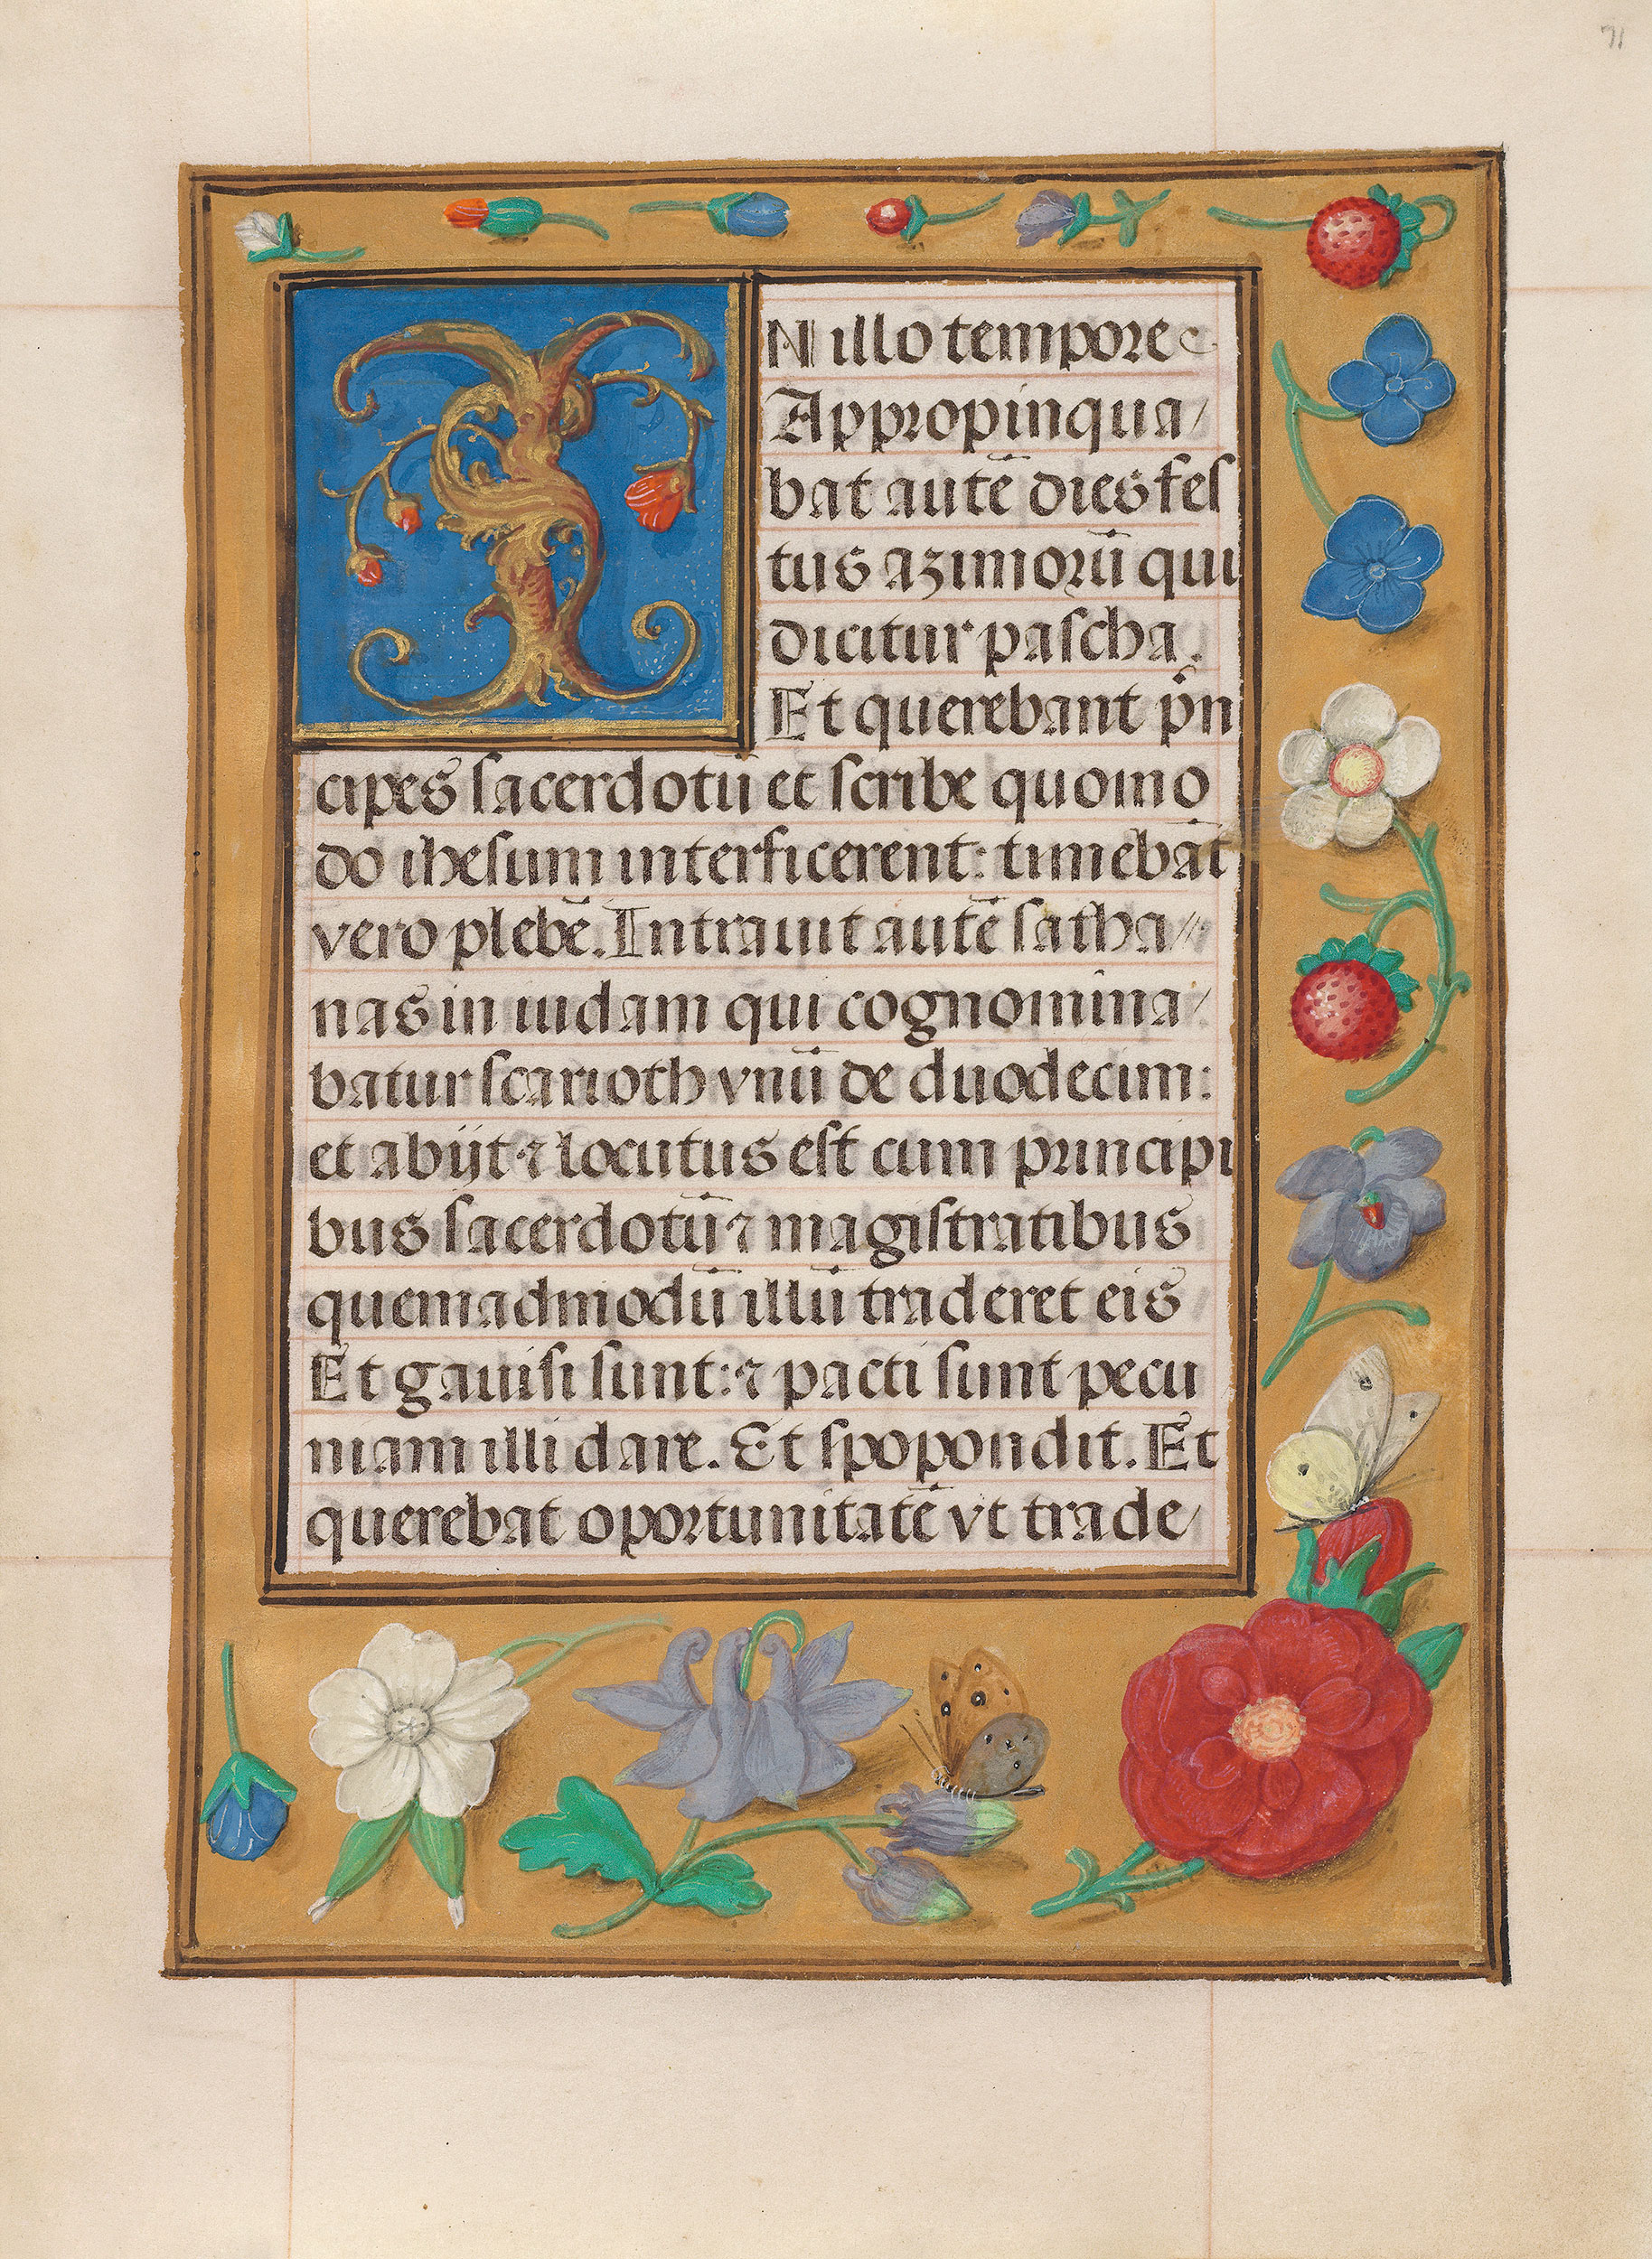 71
IN illo tempore
Appropinqua/
bat autē dies fes
tus azimorū qui
dicitur pascha.
Et querebant p̊n
cipes sacerdotū et scribe quomo
do ihesum interficerent: timebāt
vero plebē. Intrauit autē satha//
nas in iudam qui cognomina/
batur scarioth vnū de duodecim:
et abijt ⁊ locutus est cum principi
bus sacerdotū ⁊ magistratibus
quemadmodū illū traderet eis
Et gauisi sunt: ⁊ pacti sunt pecu
niam illi dare. Et spopondit. Et
querebat oportunitatē vt trade/